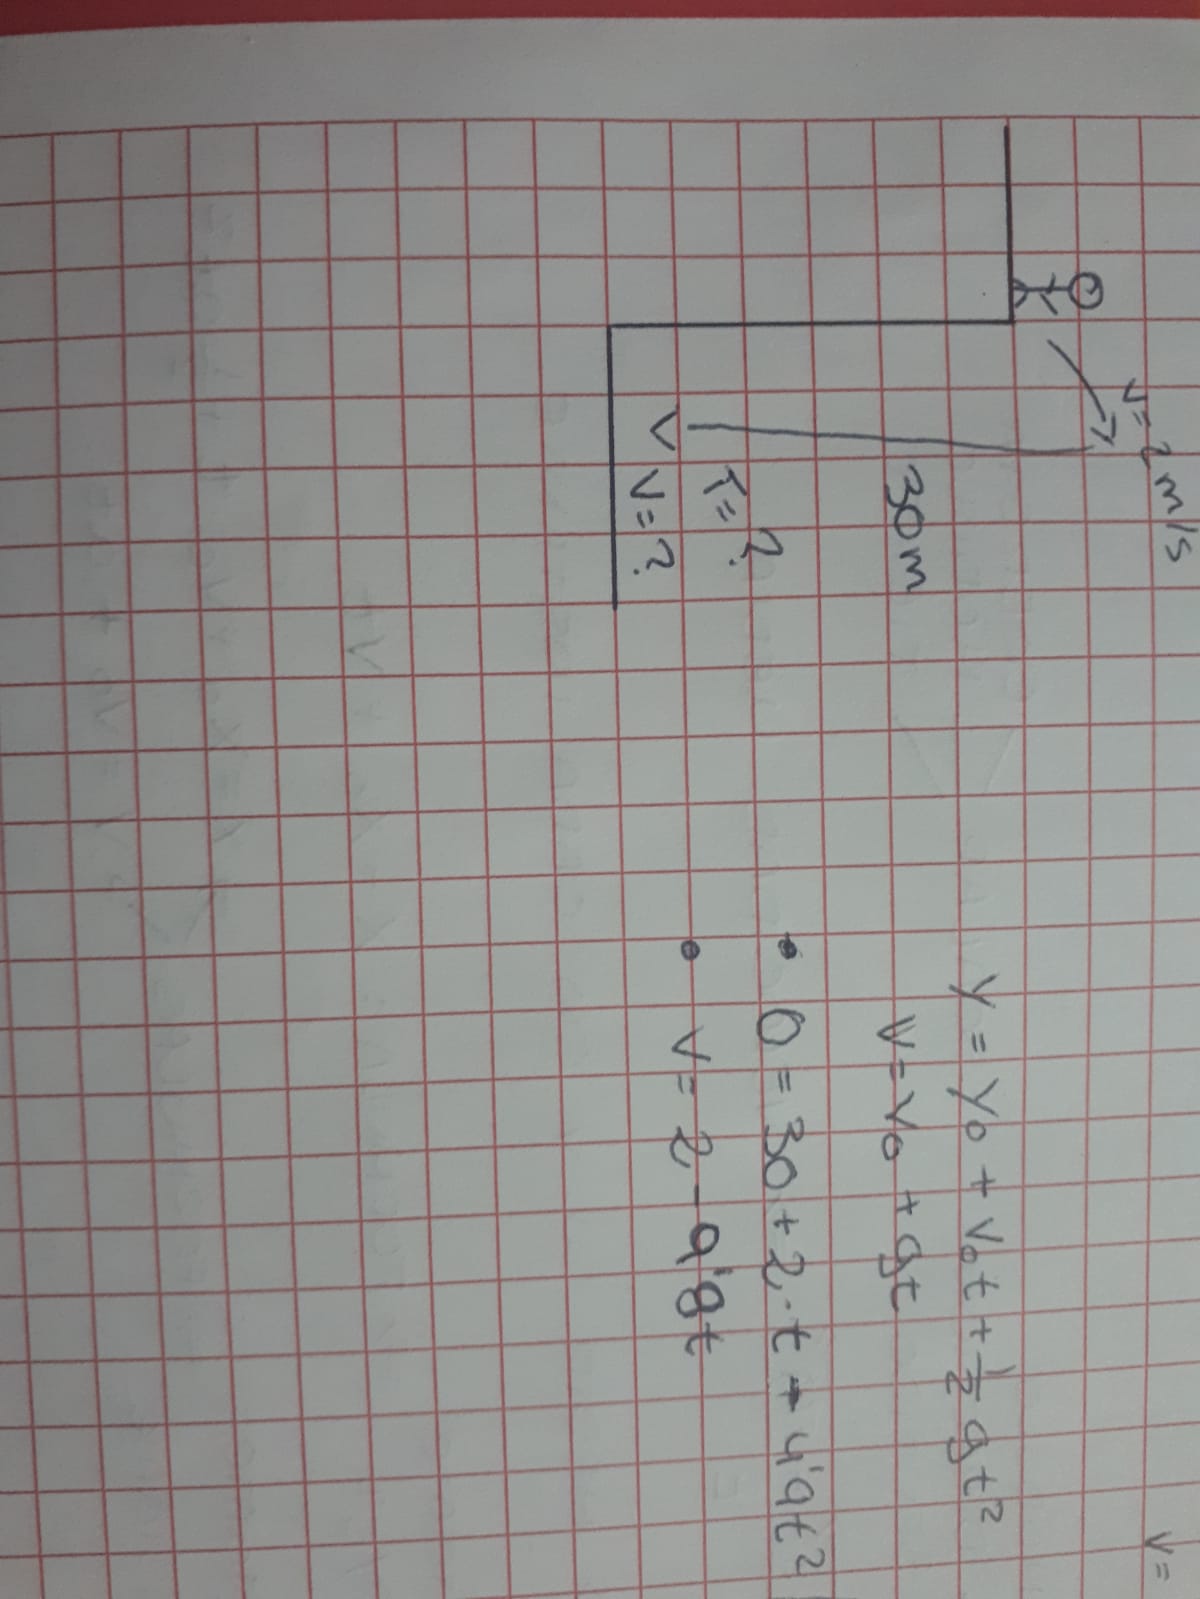 v=2m/s
30m
T=?
v=?
y = y₀ + v₀t + 1/2 gt²
v = v₀ + gt
• 0 = 30 + 2·t - 4'9t²
• v = 2 - 9'8t
v=